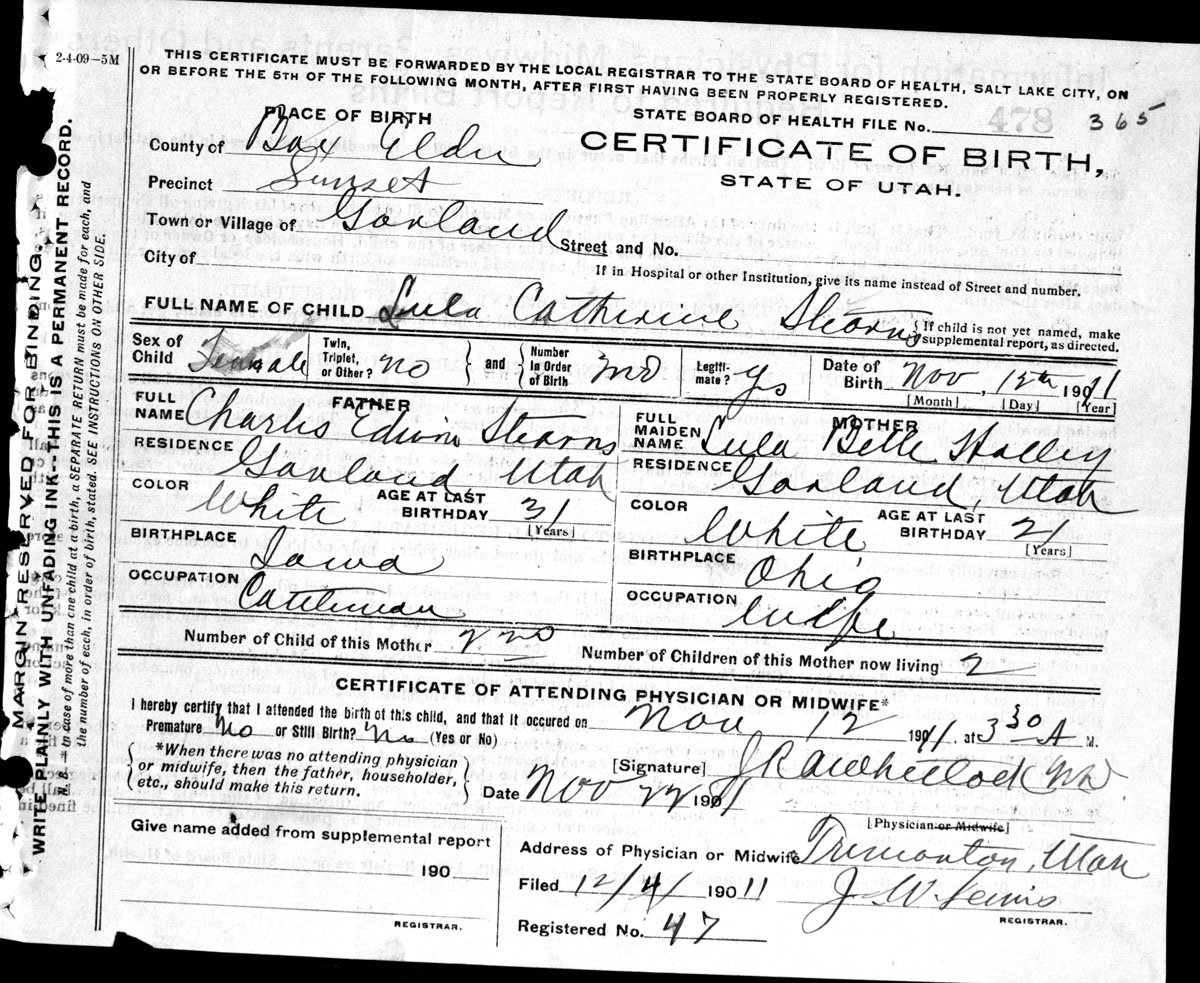 2-4-09-5M
THIS CERTIFICATE MUST BE FORWARDED BY THE LOCAL REGISTRAR TO THE STATE BOARD OF HEALTH, SALT LAKE CITY, ON
OR BEFORE THE 5TH OF THE FOLLOWING MONTH, AFTER FIRST HAVING BEEN PROPERLY REGISTERED.
PLACE OF BIRTH
STATE BOARD OF HEALTH FILE No. 478 365
County of Box Elder
CERTIFICATE OF BIRTH,
STATE OF UTAH.
Precinct Sunset
Town or Village of Garland Street and No.
If in Hospital or other Institution, give its name instead of Street and number.
City of
FULL NAME OF CHILD Lula Catherine Stearns {If child is not yet named, make
supplemental report, as directed.
Sex of Child Female Twin, Triplet, or Other? no } and { Number in Order of Birth 2nd Legitimate? Yes Date of Birth Nov, 12th 1911
[Month] [Day] [Year]
FATHER
FULL NAME Charles Edwin Stearns
RESIDENCE Garland Utah
COLOR White AGE AT LAST BIRTHDAY 31
[Years]
BIRTHPLACE Iowa
OCCUPATION Cattleman
MOTHER
FULL MAIDEN NAME Lula Belle Holley
RESIDENCE Garland, Utah
COLOR White AGE AT LAST BIRTHDAY 21
[Years]
BIRTHPLACE Ohio
OCCUPATION Wife
Number of Child of this Mother 2nd Number of Children of this Mother now living 2
CERTIFICATE OF ATTENDING PHYSICIAN OR MIDWIFE*
I hereby certify that I attended the birth of this child, and that it occured on Nov 12 1911. at 3 30 A M.
Premature No or Still Birth? No (Yes or No)
{ *When there was no attending physician
or midwife, then the father, householder,
etc., should make this return. }
[Signature] J R Wheelock MD
Date Nov 22 1911
[Physician or Midwife]
Give name added from supplemental report
190
REGISTRAR.
Address of Physician or Midwife Tremonton, Utah
Filed 12/4/ 19011 J. W. Lewis
REGISTRAR.
Registered No. 47
MARGIN RESERVED FOR BINDING.
WRITE PLAINLY WITH UNFADING INK--THIS IS A PERMANENT RECORD.
N. B.—In case of more than one child at a birth, a SEPARATE RETURN must be made for each, and
the number of each, in order of birth, stated. SEE INSTRUCTIONS ON OTHER SIDE.